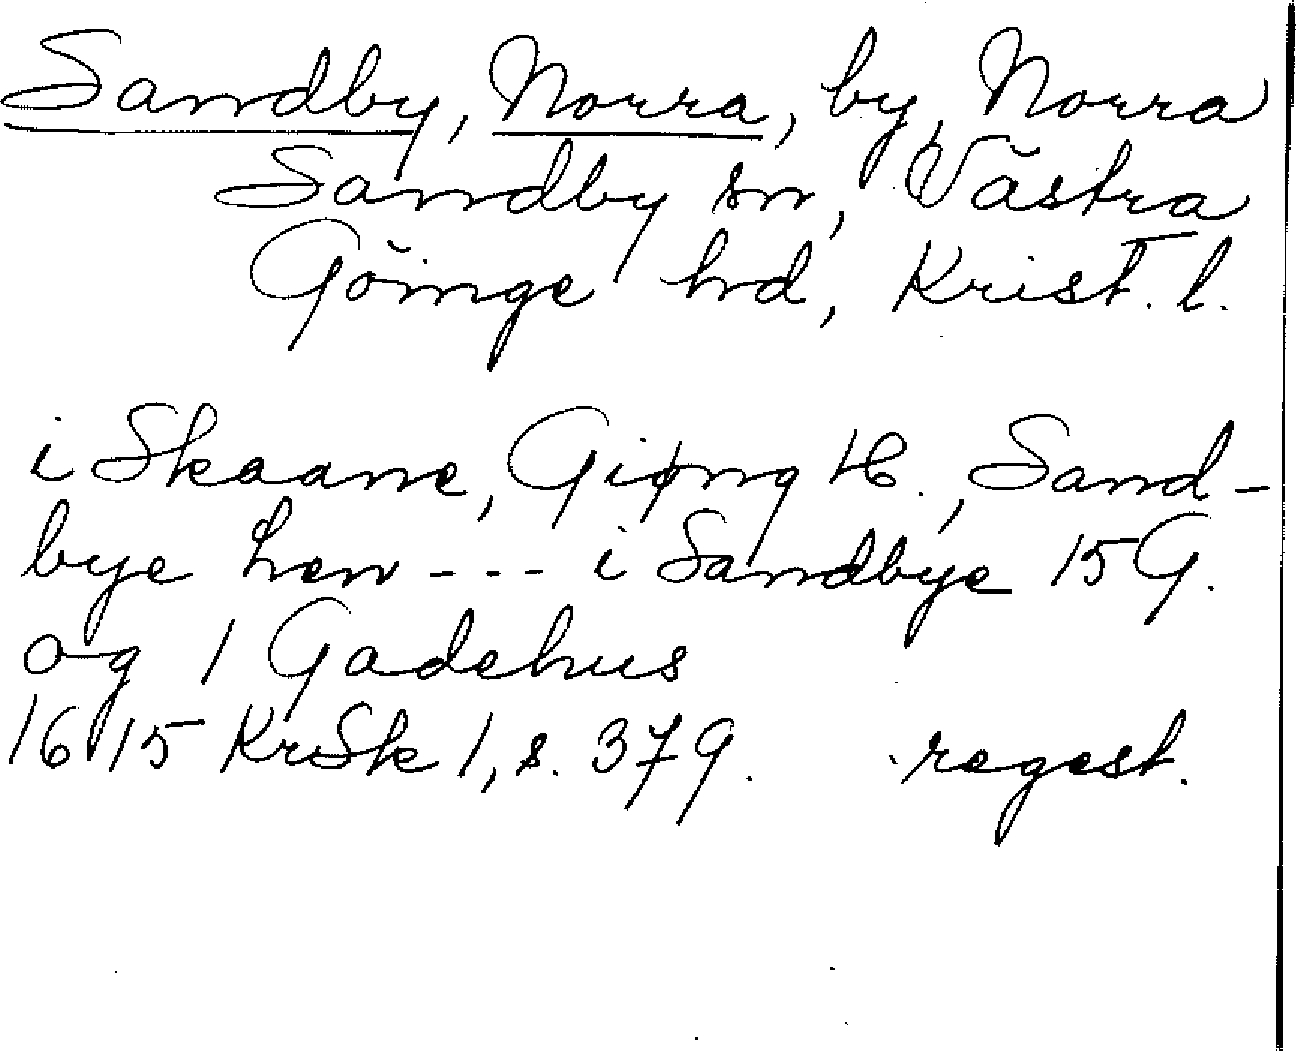 Sandby, Norra, by, Norra
Sandby sn, Västra
Göinge hd, Krist. l.
i Skaane, Giøng H., Sand-
bye hen --- i Sandbye 15 G.
og 1 Gadehus
1615 KrSk 1, s. 379. regest.